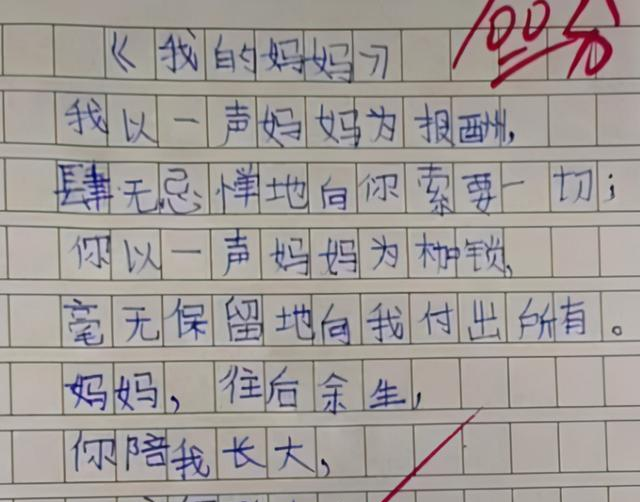 100分
《我的妈妈》
我以一声妈妈为报酬,
肆无忌惮地向你索要一切；
你以一声妈妈为枷锁,
毫无保留地向我付出所有。
妈妈，往后余生,
你陪我长大,